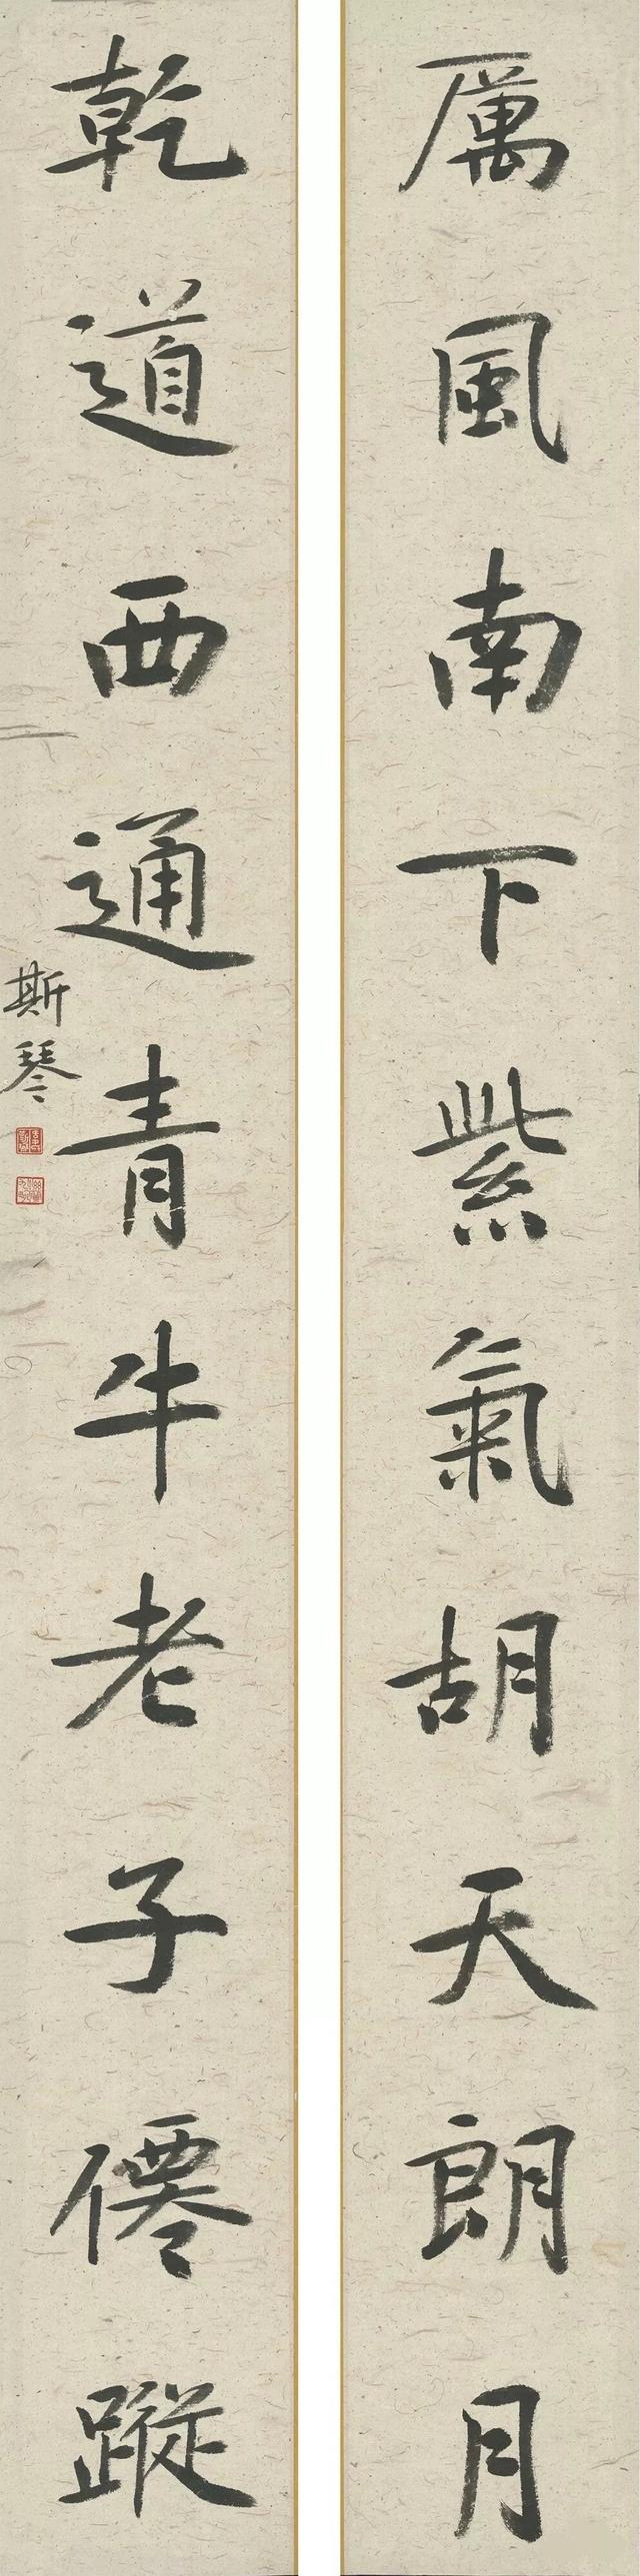 厲風南下紫氣胡天朗月
乾道西通青牛老子僊蹤
斯琴